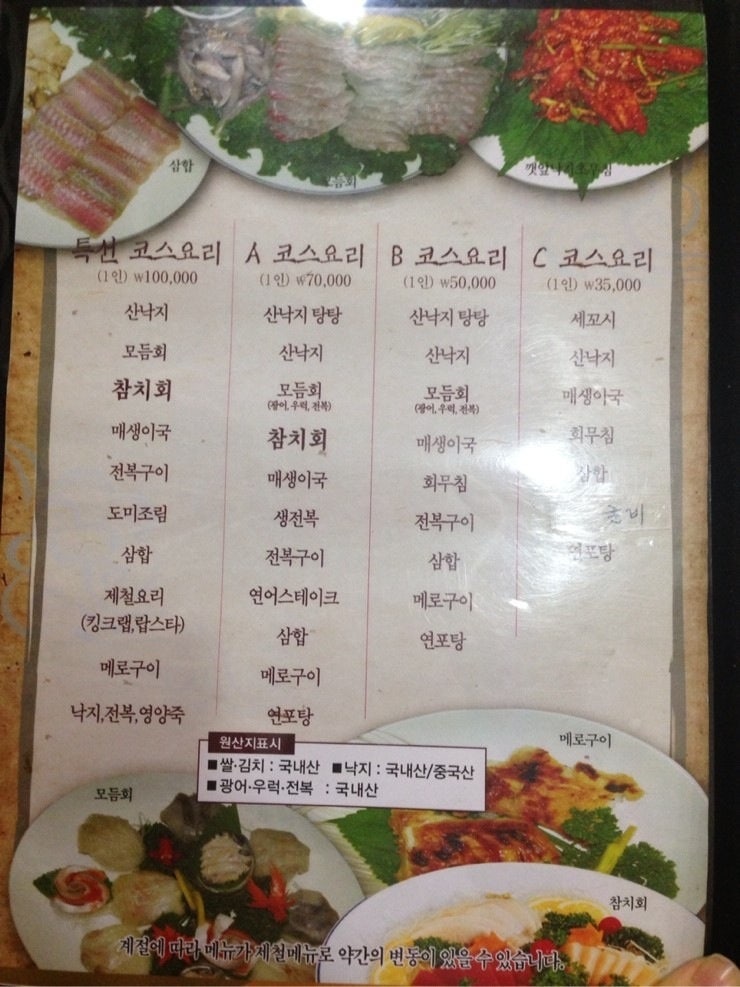 삼합
모듬회
깻잎낙지초무침
특선 코스요리
(1인) ₩100,000
산낙지
모듬회
참치회
매생이국
전복구이
도미조림
삼합
제철요리
(킹크랩,랍스타)
메로구이
낙지,전복,영양죽
A 코스요리
(1인) ₩70,000
산낙지 탕탕
산낙지
모듬회
(광어,우럭,전복)
참치회
매생이국
생전복
전복구이
연어스테이크
삼합
메로구이
연포탕
B 코스요리
(1인) ₩50,000
산낙지 탕탕
산낙지
모듬회
(광어,우럭,전복)
매생이국
회무침
전복구이
삼합
메로구이
연포탕
C 코스요리
(1인) ₩35,000
세꼬시
산낙지
매생이국
회무침
삼합
연포탕
원산지표시
■쌀·김치 : 국내산 ■낙지 : 국내산/중국산
■광어·우럭·전복 : 국내산
모듬회
메로구이
참치회
계절에 따라 메뉴가 제철메뉴로 약간의 변동이 있을 수 있습니다.